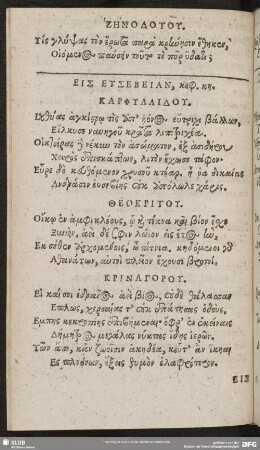 ΖΗΝΟΔΟΤΟΥ.
Τίς γλύψας τὸν ἔρωτα παρὰ κρήνῃσιν ἔθηκεν,
Οἰόμενος παύσειν τοῦτο τὸ πῦρ ὕδατι;
ΕΙΣ ΕΥΣΕΒΕΙΑΝ, κεφ. κη.
ΚΑΡΦΥΛΛΙΔΟΥ.
Ἰχθύας ἀγκίστρῳ τις ἀπ' ἠόνος εὔτριχι βάλλων,
Εἵλκυσε ναυηγοῦ κρᾶτα λιποτριχέα.
Οἰκτείρας δὲ νέκυν τὸν ἀσώματον, ἐξ ἀσιδήρου
Χειρὸς ἐπισκάπτων, λιτὸν ἔχωσε τάφον.
Εὗρε δὲ κευθόμενον χρυσοῦ κτέαρ. ἦ ῥα δικαίοις
Ἀνδράσιν εὐσεβίης οὐκ ἀπόλωλε χάρις.
ΘΕΟΚΡΙΤΟΥ.
Οἴκῳ ἐν ἀμφικλέους, ᾧ καὶ τέκνα καὶ βίον ἔσχε
Ξυνόν, ἀεὶ δέ σφιν λώϊον εἰς ἔτος ἦν,
Ἐκ σέθεν ἀρχομένοις, ὦ πότνια. κηδόμενοι γὰρ
Ἀθανάτων, αὐτοὶ πλεῖον ἔχουσι βροτοί.
ΚΡΙΝΑΓΟΡΟΥ.
Εἰ καί σοι ἑδραῖος ἀεὶ βίος, οὐδὲ θάλασσαν
Ἔπλως, χερσαίας τ' οὐκ ἐπάτησας ὁδούς,
Ἔμπης κεκροπίης ἐπιβήμεναι· ὄφρ' ἂν ἐκείνας
Δήμητρος μεγάλας νύκτας ἴδῃς ἱερῶν.
Τῶν ἄπο, κἀν ζωοῖσιν ἀκηδέα, κεῦτ' ἂν ἵκηαι
Ἐς πλεόνων, ἕξεις θυμὸν ἐλαφρότερον.
ΕΙΣ
SLUB
DFG